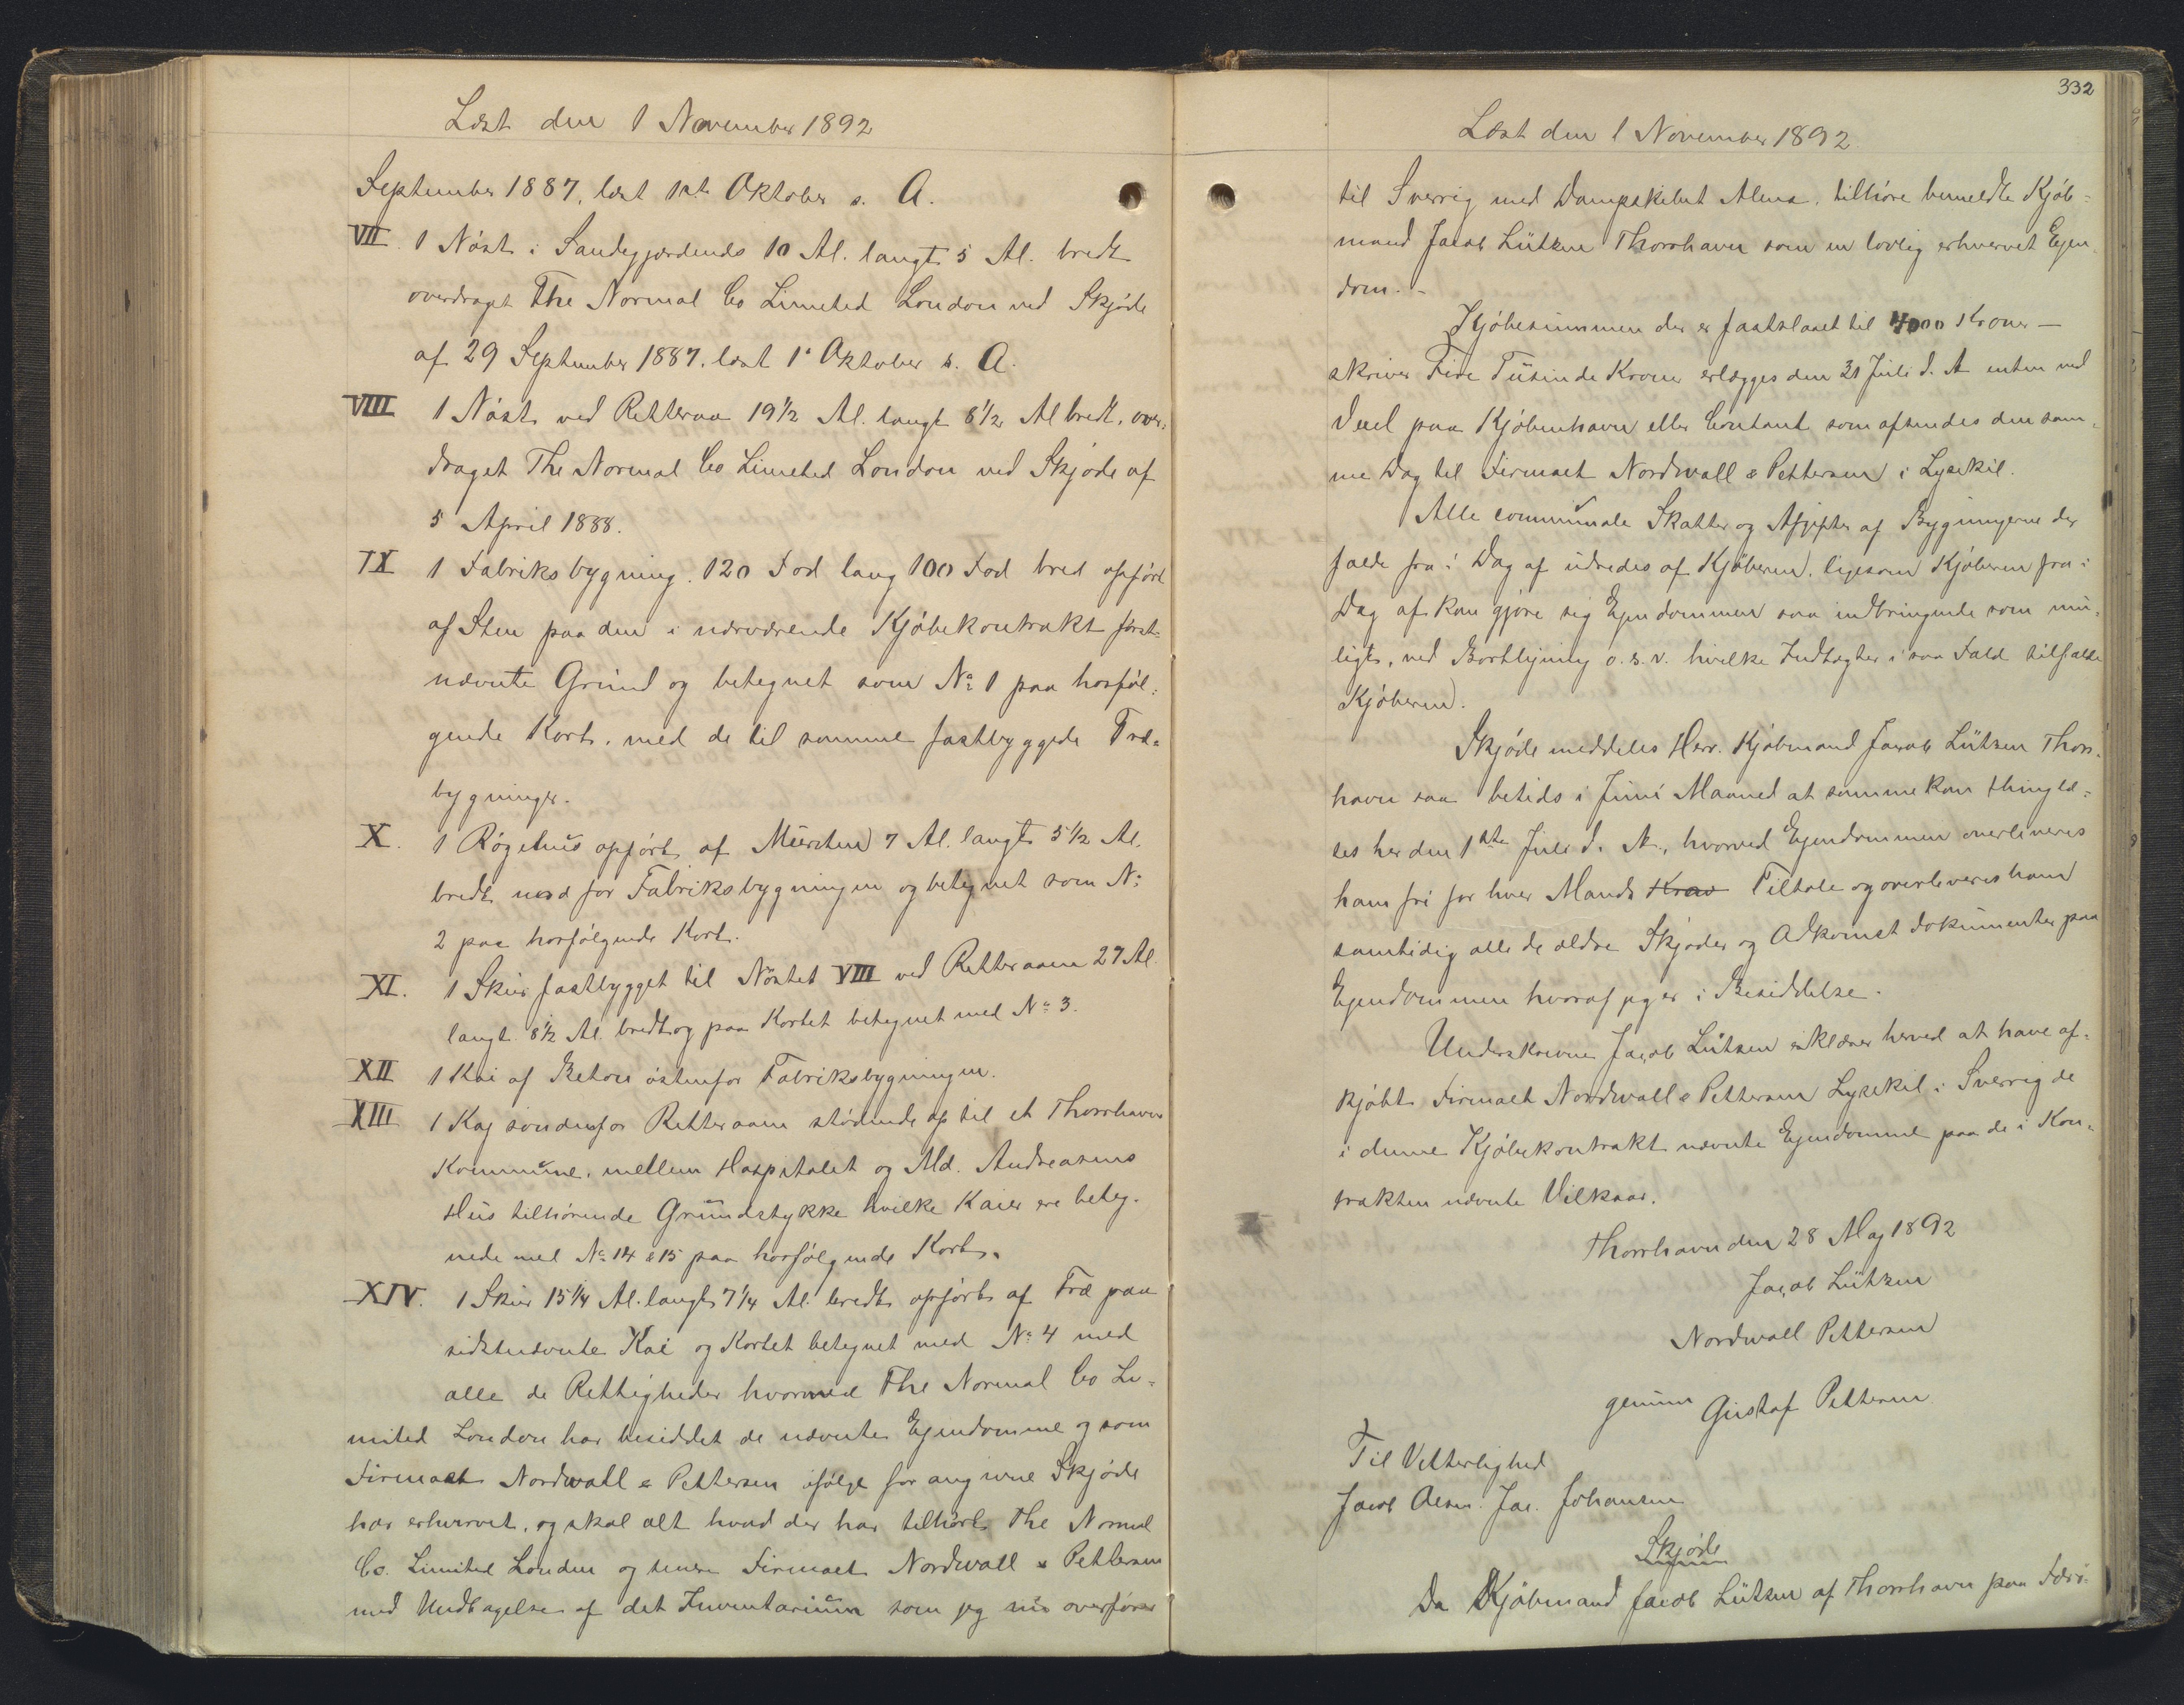 Læst den 1 November 1892
September 1887, læst 1st Oktober s. A.
VII. 1 Nóst i Sandegjærdends 10 Al. langt 5 Al. bredt
overdraget The Normal Co Limeted London ved Skjöde
af 29 September 1887. læst 1' Oktober s. A.
VIII 1 Nóst ved Retteraa 19 1/2 Al. langt 8 1/2 Al bredt, over-
draget The Normal Co Limeted London ved Skjøde af
5 April 1888.
IX 1 Fabriksbygning. 120 Fod lang 100 Fod bred opfört
af Sten paa den i nærværende Kjöbekontrakt först-
nævnte Grund og betegnet som No 1 paa hosföl-
gende Kort, med de til samme fastbyggede Træ-
bygninger.
X. 1 Rögehus opfört af Mursten 7 Al. langt 5 1/2 Al.
bredt nord for Fabriksbygningen og betegnet som No
2 paa hosfölgende Kort.
XI. 1 Skur fastbygget til Nöstet VIII ved Retteraaen 27 Al
langt 8 1/2 Al. bredt og paa Kortet betegnet med No 3.
XII 1 Kai af Beton östenfor Fabriksbygningen.
XIII 1 Kaj söndenfor Retteraaen stödende op til et Thorshavns
Kommune, mellem Hospitalet og Md. Andreasens
Hus tilhörende Grundstykke hvilke Kaier ere beteg-
nede med No 14 & 15 paa hosfölgende Kort.
XIV. 1 Skur 15 1/4 Al. langt 7 1/4 Al. bredt opfört af Træ paa
sidstnævnte Kai og Kortet betegnet med No 4 med
alle de Rettigheder hvormed The Normal Co Li-
mited London har besiddet de nævnte Ejendomme og som
Firmaet Nordwall & Pettersen ifølge for angivne Skjöde
har erhvervet, og skal alt hvad der har tilhört The Normal
Co. Limited London og senere Firmaet Nordwall & Pettersen
med Undtagelse af det Inventarium som jeg nu overförer
332
Læst den 1 November 1892
til Sverrig med Dampskibet Alma, tilhöre bemeldte Kjöb-
mand Jacob Lützen Thorshavn som en lovlig erhvervet Ejen-
dom. -
Kjöbesummen der er fastslaaet til 4000 Kroner -
skriver Fire Tusinde Kroner erlægges den 31 Juli d. A enten ved
Vexel paa Kjöbenhavn eller Contant som afsendes den sam-
me Dag til Firmaet Nordwall & Pettersen i Lysekil.
Alle communale Skatter og Afgifter af Bygningerne der
falde fra i Dag af udredes af Kjøberen, ligesom Kjöberen fra i
Dag af kan gjøre sig Ejendommen saa indbringende som mu-
ligt, ved Bortlejning o. s. v. hvilke Indtægter i saa Fald tilfalde
Kjöberen.
Skjöde meddeles Herr. Kjöbmand Jacob Lützen Thors-
havn saa betids i Juni Maaned at samme kan thinglæ-
ses her den 1ste Juli d. A., hvorved Ejendommen overleveres
ham fri for hver Mands Krav Tiltale og overleveres ham
samtidig alle de ældre Skjøder og Adkomst dokumenter paa
Ejendommen hvoraf jeg er i Besiddelse.
Underskrevne Jacob Lützen erklærer herved at have af-
kjöbt Firmaet Nordwall & Pettersen Lysekil i Sverrig de
i denne Kjöbekontrakt nævnte Ejendomme paa de i Kon-
trakten nævnte Vilkaar.
Thorshavn den 28 Maj 1892
Jacob Lützen
Nordwall Pettersen
genom Gustaf Pettersen
Til Vitterlighed
Jacob Olsen. Jac. Johansen
Skjøde
Da Kjöbmand Jacob Lützen af Thorshavn paa Færö-